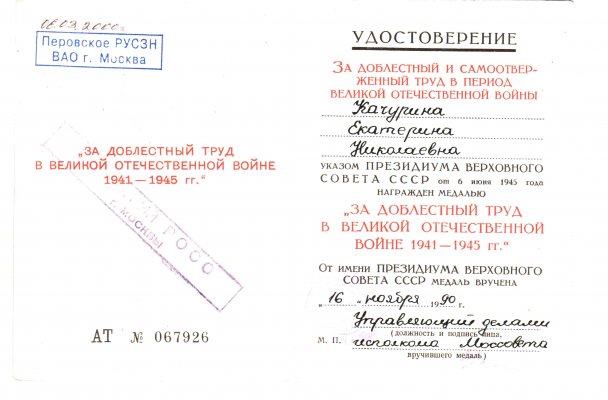 06.03.2000г.
Перовское РУСЗН
ВАО г. Москва
„ЗА ДОБЛЕСТНЫЙ ТРУД
В ВЕЛИКОЙ ОТЕЧЕСТВЕННОЙ ВОЙНЕ
1941—1945 гг.“
РОСО
г. МОСКВЫ
АТ № 067926
УДОСТОВЕРЕНИЕ
ЗА ДОБЛЕСТНЫЙ И САМООТВЕР-
ЖЕННЫЙ ТРУД В ПЕРИОД
ВЕЛИКОЙ ОТЕЧЕСТВЕННОЙ ВОЙНЫ
Качурина
Екатерина
Николаевна
УКАЗОМ ПРЕЗИДИУМА ВЕРХОВНОГО
СОВЕТА СССР от 6 июня 1945 года
НАГРАЖДЕН МЕДАЛЬЮ
„ЗА ДОБЛЕСТНЫЙ ТРУД
В ВЕЛИКОЙ ОТЕЧЕСТВЕННОЙ
ВОЙНЕ 1941—1945 гг.“
От имени ПРЕЗИДИУМА ВЕРХОВНОГО
СОВЕТА СССР МЕДАЛЬ ВРУЧЕНА
„16 „ ноября 1990 г.
Управляющий делами
(должность и подпись лица,
М. П. исполкома Моссовета
вручившего медаль)